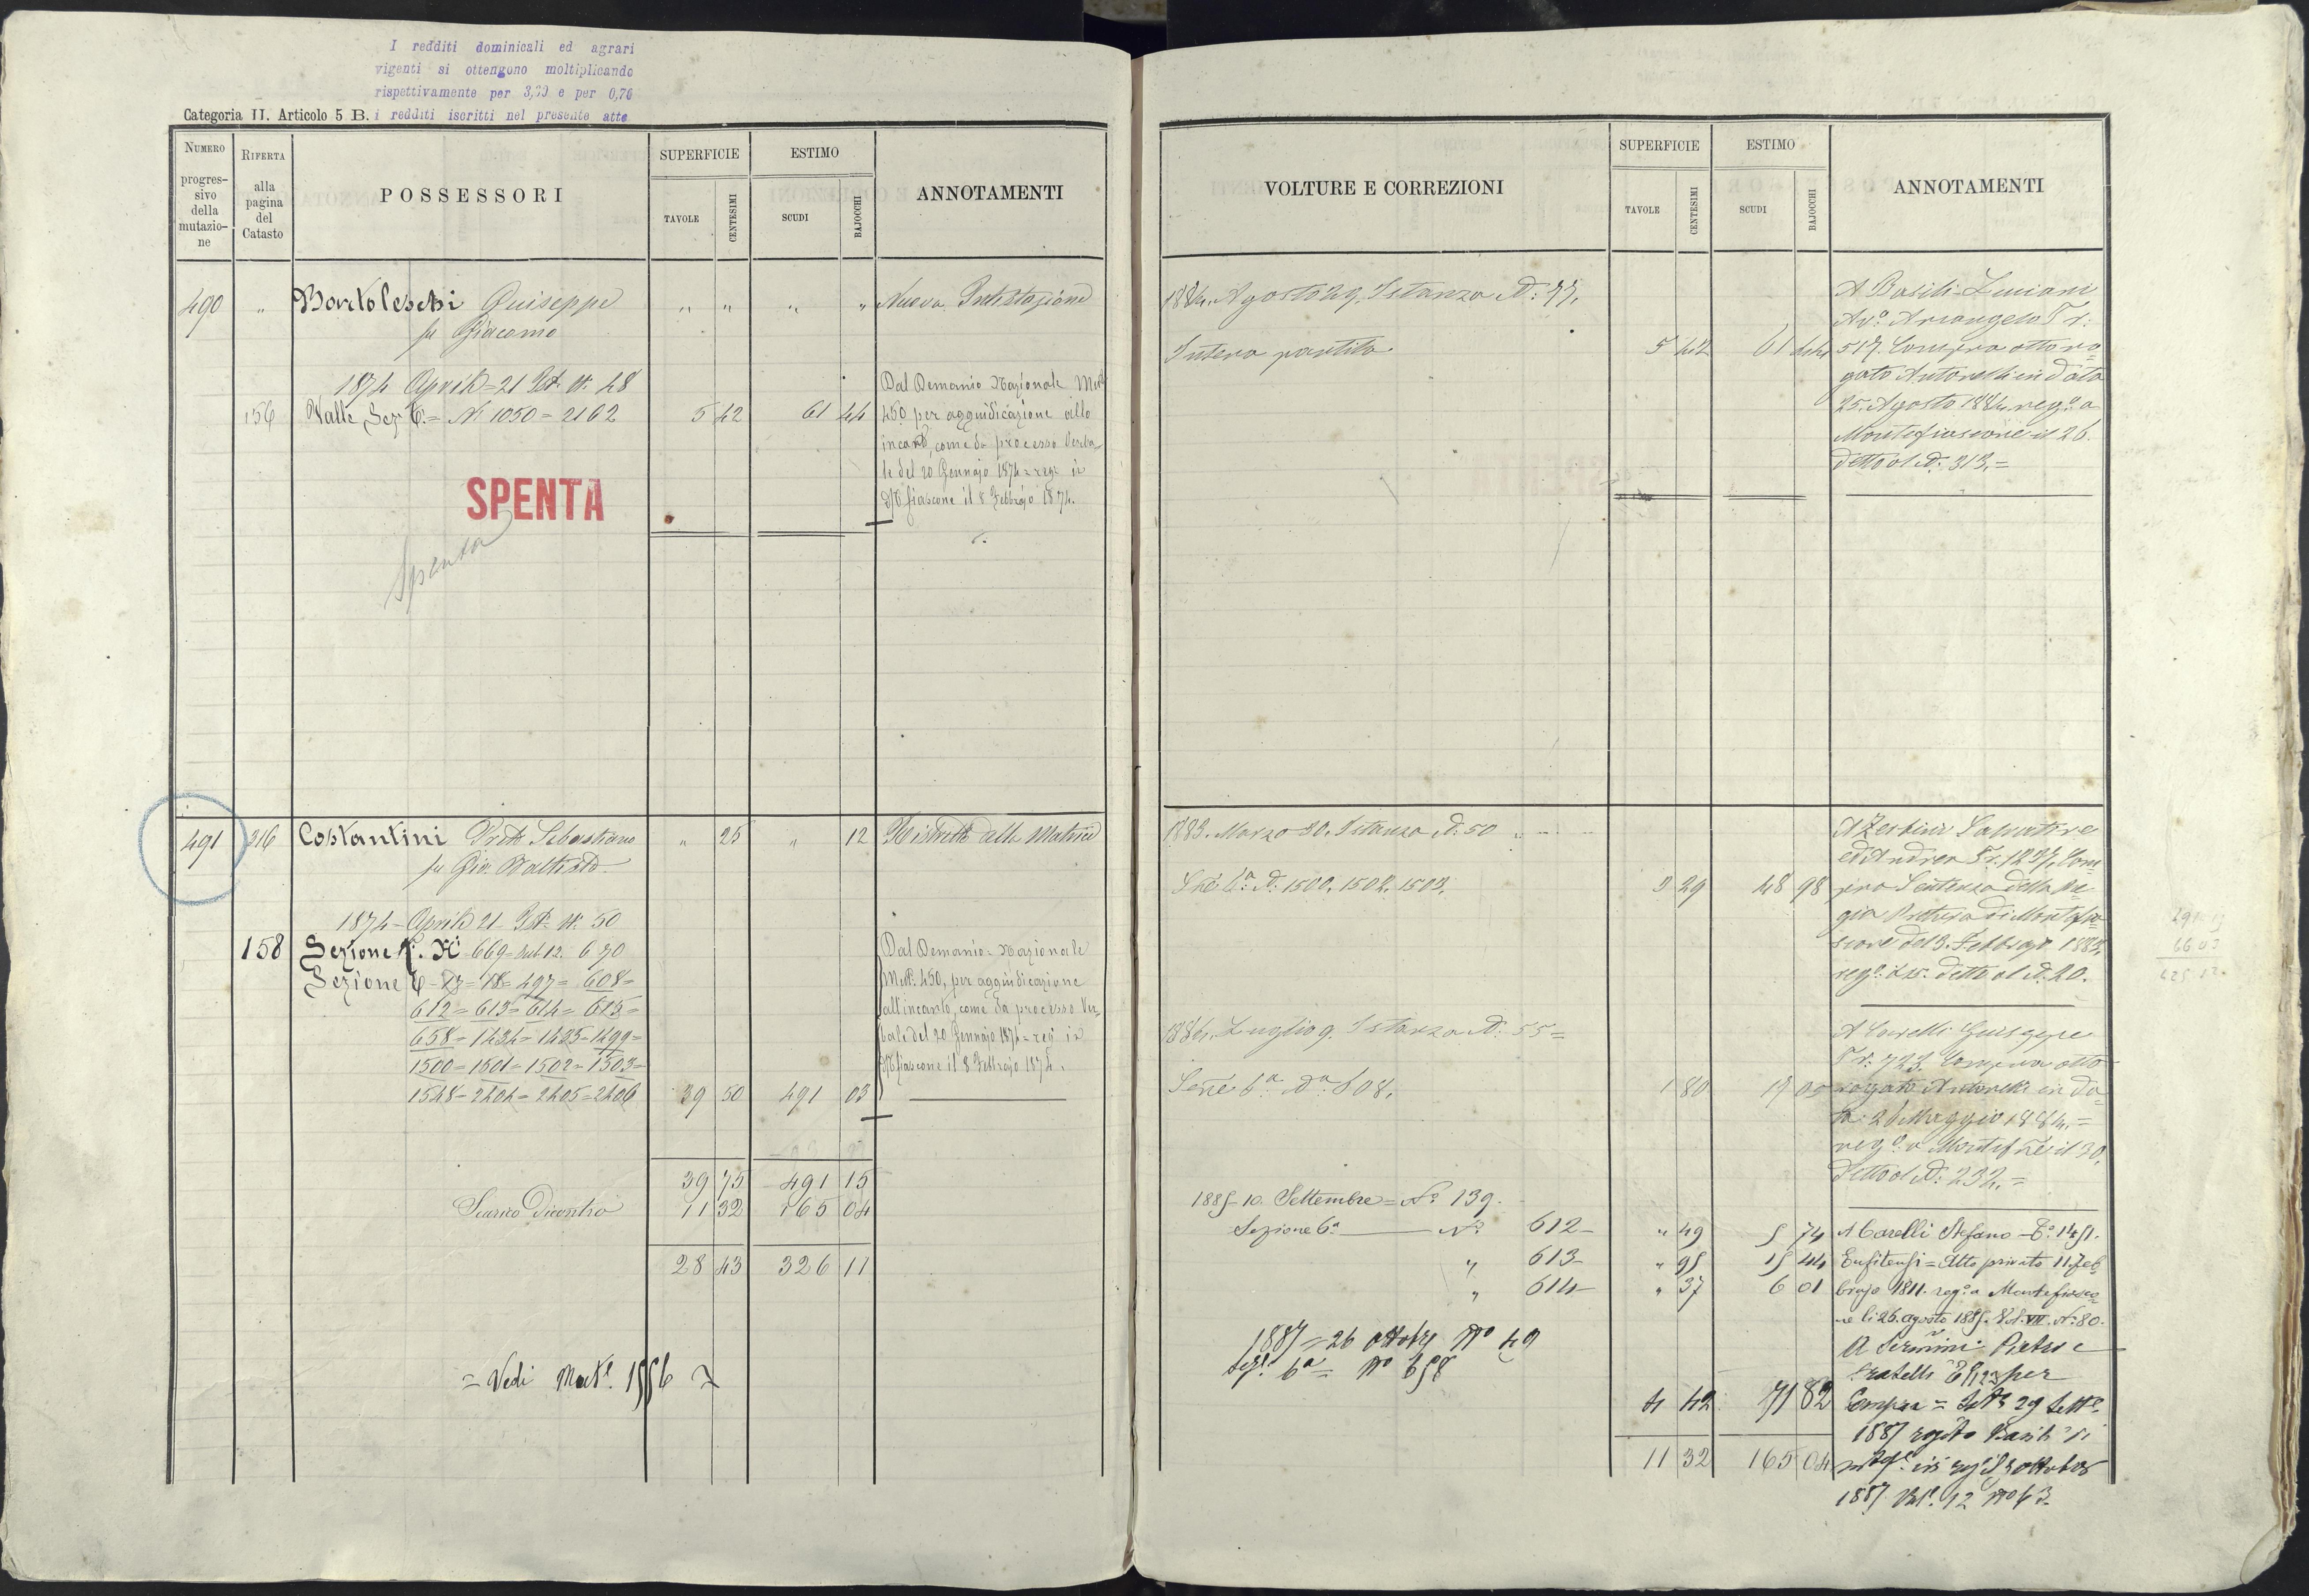 I redditi dominicali ed agrari
vigenti si ottengono moltiplicando
rispettivamente per e per 0,70
i redditi iscritti nel presente atto
Categoria II. Articolo 5 B.
NUMERO progres-
sivo
della
mutazio-
ne
RIFERTA
alla
pagina
del
Catasto
POSSESSORI
SUPERFICIE
TAVOLE
CENTESIMI
ESTIMO
SCUDI
BAJOCCHI
ANNOTAMENTI
490 " Bartoleschi Guiseppe " " " " Nuova Intestazione
fu Giacomo
1874 Aprile = 21 Ist. N. 48
156 Valle Sez. 6.= N 1050 = 2162 5 42 61 44
Dal Demanio Nazionale
450 per aggiudicazione allo
incanto, come da processo Verba-
le del 20 Gennajo 1874 = reg. in
M fiascone il 8 Febbrajo 1874.
SPENTA
Spenta
491 316 Costantini Sebastiano " 25 " 12 Ristretto alla Matrice
fu Gio. Battista
1874 = Aprile 21 Ist. N. 50
158 Sezione 669 = Sub 12. 670
Sezione 6 = 13 = 18 = 497 = 608 =
612 = 613 = 614 = 615 =
658 = 1434 = 1435 = 1499 =
1500 = 1501 = 1502 = 1503 =
1548 = 2404 = 2405 = 2406 39 50 491 03
Dal Demanio = Nazionale
450, per aggiudicazione
all'incanto, come da processo Ver-
bale del 20 Gennajo 1874 = reg in
M fiascone il 8 Febbrajo 1874.
39 75 491 15
Scarico Dicontro 11 32 165 04
28 43 326 11
= Vedi Mat. 1556
VOLTURE E CORREZIONI
SUPERFICIE
TAVOLE
CENTESIMI
ESTIMO
SCUDI
BAJOCCHI
ANNOTAMENTI
1884. Agosto 29. Istanza N. 77.
Intera partita 5 42 61 44
A Basili Luciani
Arcangelo
517. Compra atto ro-
gato Antonelli in data
25. Agosto 1884. reg. a
Montefiascone il 26.
detto al N. 313. =
1883. Marzo 30. Istanza N. 50
N. 1500. 1502. 1503. 3 29 48 98
A Zerbini Salvatore
ed Andrea
Sentenza della Re
gia Pretura di Montefia-
scone del 3. Febbrajo 1883.
detto al N. 20.
1884. Luglio 9. Istanza N. 55 =
608. 1 80 17 05
Giuseppe
723. Compra atto
rogato Antonelli in da-
ta 2 Maggio 1884. =
reg. a il 30.
detto al N. 232. =
1885 10. Settembre = N. 139.
Sezione 6a N. 612 " 49 5 74
" 613 " 95 15 44
" 614 " 37 6 01
A Carelli Stefano 1451.
Enfiteusi = Atto privato 11 Feb-
brajo 1811. reg. a Montefiasco-
ne li 26. agosto 1885. Vol. VII. N. 80.
1887 = 26 ottobre No 49
Sez. 6a = No 658 4 42 71 82
A Sermini Pietro e
fratelli per
Compra = 29 Sett.
1887 rogito Basili
ottobre
1887 Vol. 12 No 43
11 32 165 04